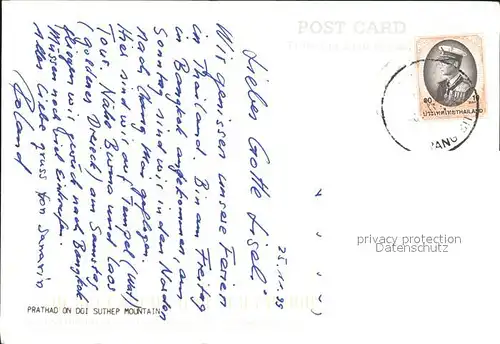 POST CARD
25.11.99
Liebes Gotte Liseli.
Wir geniessen unsere Ferien
in Thailand. Bin am Freitag
in Bangkok angekommen, am
Sonntag sind wir in den Norden
nach Chiang Mai geflogen.
Hier sind wir auf Tempel (Wat)
Tour. Nahe Burma und Laos
(goldenes Dreieck) am Samstag
fliegen wir zurück nach Bangkok
Müssen noch viel Einkaufen.
Alles Liebe Gruss von
Roland
PRATHAD ON DOI SUTHEP MOUNTAIN
ประเทศไทย THAILAND
privacy protection
Datenschutz